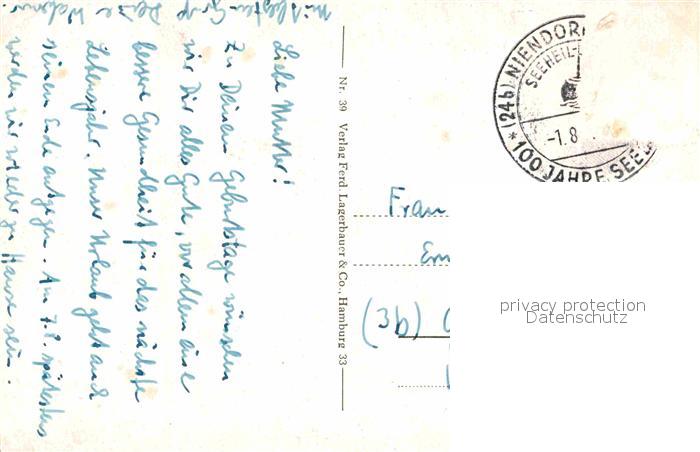 Liebe Mutter!
Zu Deinem Geburtstage wünschen
wir Dir alles Gute, vor allem eine
bessere Gesundheit für das nächste
Lebensjahr. Unser Urlaub geht auch
seinem Ende entgegen. Am 7.8. spätestens
werden wir wieder zu Hause sein.
Mit besten
Nr. 39 Verlag Ferd. Lagerbauer & Co., Hamburg 33
(24b) NIENDOR
SEEHEIL-
-1.8
* 100 JAHRE SEEB
Frau
(3b)
privacy protection
Datenschutz